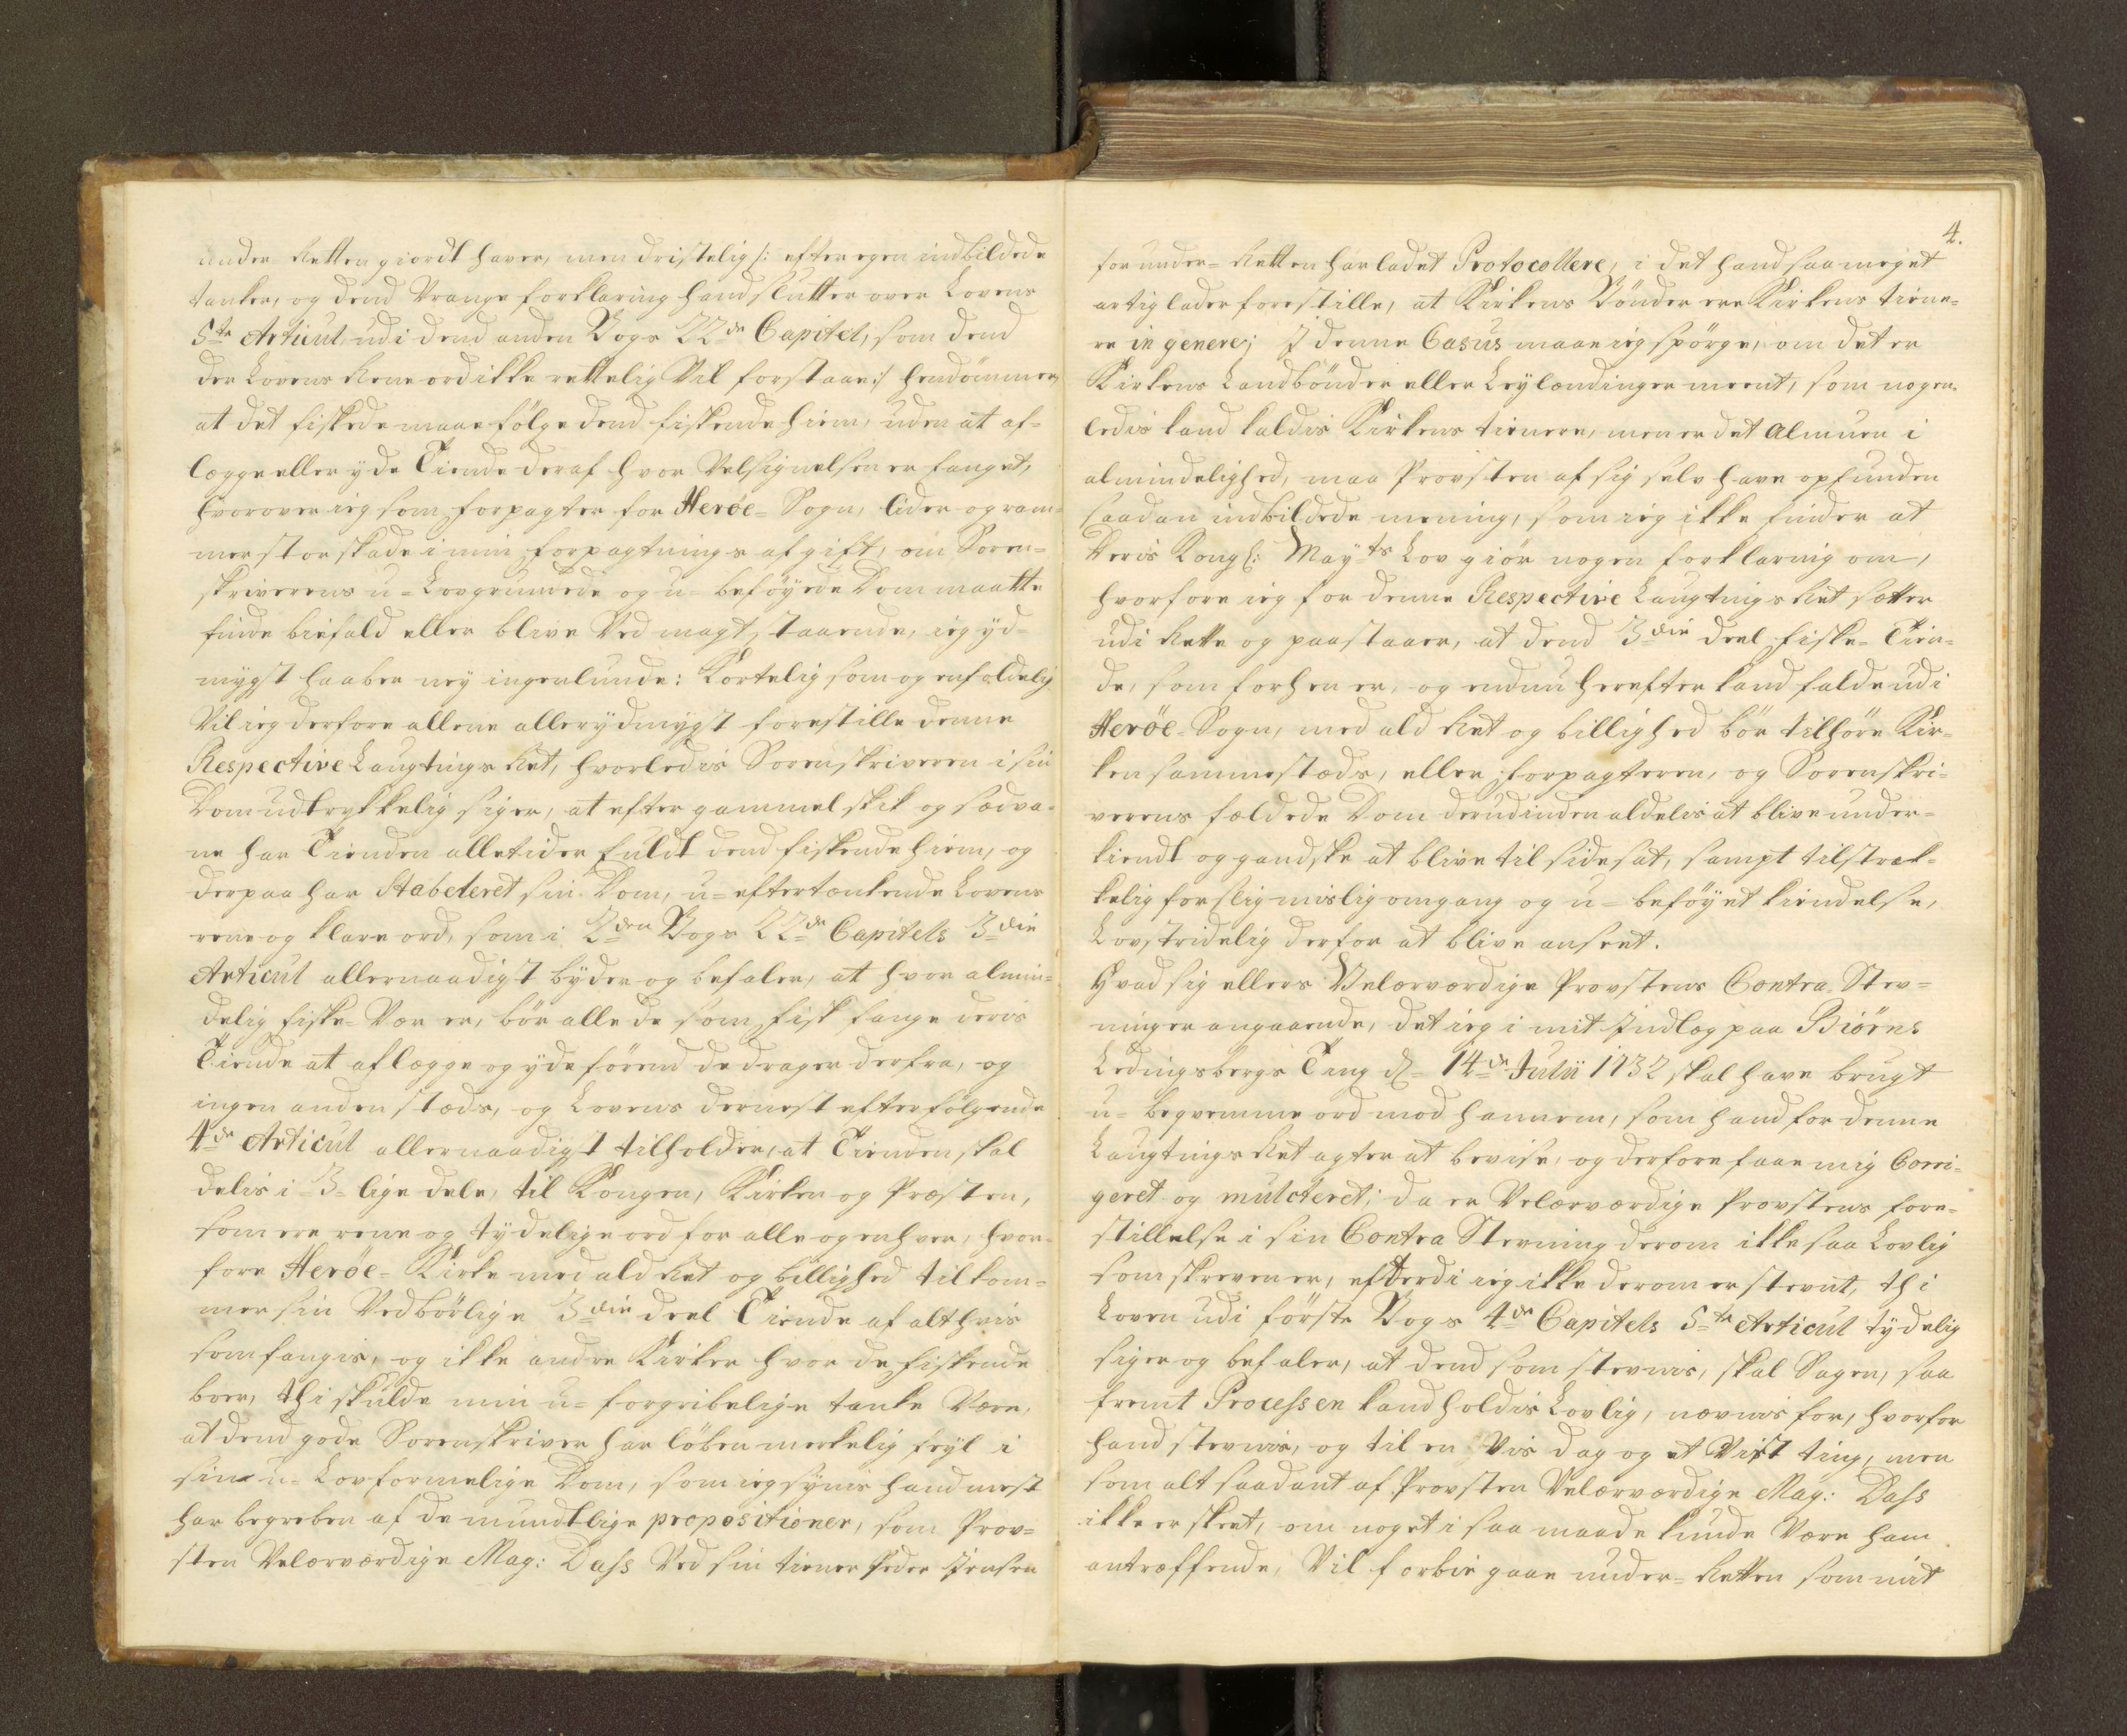 under-Retten giordt haver, men dristelig /: efter egen indbildede
tanker, og dend Vrange forklaring hand slutter over Lovens
5te Articul, udi dend anden Bogs 22de Capitel, som dend
der Lovens Rene ord ikke rettelig Vil forstaae :/ hendömmer,
at det fiskede maae fölge dend fiskende hiem, uden at af-
lægge eller yde Tiende deraf hvor Velsignelsen er fanget,
hvorover ieg som forpagter for Herøe-Sogn, lider og ram-
mer stor skade i min forpagtnings afgift, om Soren-
skriverens u-Lovgrundede og u-beföyede Dom maatte
finde biefald eller blive Ved magt staaende, ieg yd-
mygst haaber ney ingenlunde: Kortelig som og enfoldelig
Vil ieg derfore allene allerydmygst forestille denne
Respective Laugtings Ret, hvorledis Sorenskriveren i sin
Dom udtrykkelig siger, at efter gammel skik og sædva-
ne har Tienden alletider fuldt dend fiskende hiem, og
derpaa har Stabeleret sin Dom, u-eftertænkende Lovens
rene og klare ord, som i 2den Bogs 22de Capitels 3die
Articul allernaadigst byder og befaler, at hvor almin-
delig fiske-Vær er, bör alle de som fisk fange deris
Tiende at aflægge og yde förend de drager derfra, og
ingen anden stæds, og Lovens dernest efterfölgende
4de Articul allernaadigst tilholder, at Tienden skal
delis i 3 lige dele, til Kongen, Kirken og Præsten,
som ere rene og tydelige ord for alle og enhver, hvor-
fore Herøe-Kirke med ald Ret og billighed tilkom-
mer sin Vedbörlige 3die deel Tiende af alt hvis
som fangis, og ikke andre Kirker hvor de fiskende
boer, thi skulde min u-forgribelige tanke Være,
at dend gode Sorenskriver har löben merkelig feyl i
sin u-Lovformelige Dom, som ieg synis hand mest
har begreben af de mundtlige propositioner, som Prov-
sten Velærværdige Mag: Dass Ved sin tiener Peder Jensen
4.
for under-Retten har ladet Protocollere, i det hand saa meget
artig lader forestille, at Kirkens Bönder ere Kirkens tiene-
re in genere; I denne Casus maae ieg spörge, om det er
Kirkens Landbönder eller Leylændinger meent, som nogen-
ledis kand kaldis Kirkens tienere, men er det Almuen i
almindelighed, maa Provsten af sig selv have opfunden
saadan indbildede mening, som ieg ikke finder at
Deris Kongl: Mayts Lov giör nogen forklaring om,
hvorfore ieg for denne Respective Laugtings Ret sætter
udi Rette og paastaaer, at dend 3die deel fiske-Tien-
de, som forhen er, og endnu herefter kand falde udi
Herøe-Sogn, med ald Ret og billighed bör tilhöre Kir-
ken sammestæds, eller forpagteren, og Sorenskri-
verens fældede Dom derudinden aldelis at blive under-
kiendt og gandske at blive til side sat, sampt tilstræk-
kelig for slig mislig omgang og u-beföyet kiendelse,
Lovstridelig derfor at blive anseet.
Hvad sig ellers Velærværdige Provstens Contra-Stev-
ninger angaaende, det ieg i mit Indlæg paa Biörns
Ledingsbergs Ting d. 14de Julii 1732 skal have brugt
u-beqvemme ord mod hannem, som hand for denne
Laugtings Ret agter at bevise, og derfore faae mig Corri-
geret og mulcteret; da er Velærværdige Provstens fore-
stillelse i sin Contra Stevning derom ikke saa Lovlig
som skreven er, efterdi ieg ikke derom er stevnt, thi
Loven udi förste Bogs 4de Capitels 5te Articul tydelig
siger og befaler, at dend som stevnis, skal Sagen, saa
fremt Processen kand holdis Lovlig, nævnis for, hvorfor
hand stevnis, og til en Vis dag og et Vist ting, men
som alt saadant af Provsten Velærværdige Mag: Dass
ikke er skeet, om noget i saa maade kunde Være ham
antræffende, Vil forbie gaae under-Retten som mit